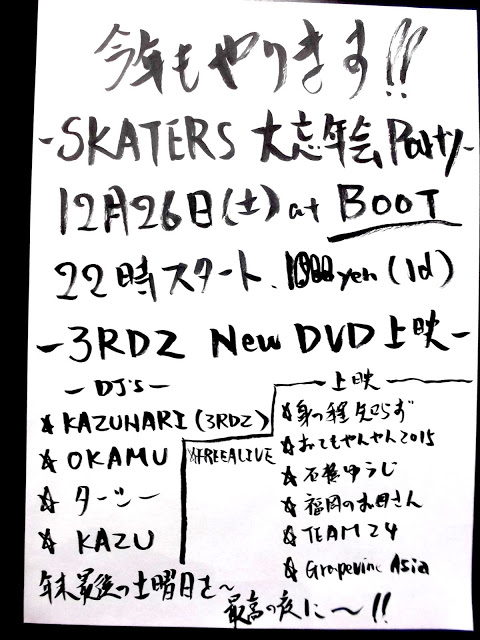 今年もやります!!
-SKATERS 大忘年会 Party-
12月26日(土) at BOOT
22時スタート、1000yen (1d)
-3RDZ New DVD上映-
-DJ's-
☆KAZUNARI (3RDZ)
☆OKAMU
☆ターシー
☆KAZU
☆FREEALIVE
-上映-
☆身の程知らず
☆おてもやんやん2015
☆石巻ゆうじ
☆福岡のお母さん
☆TEAM24
☆Grapevine Asia
年末最後の土曜日を〜
最高の夜に〜!!